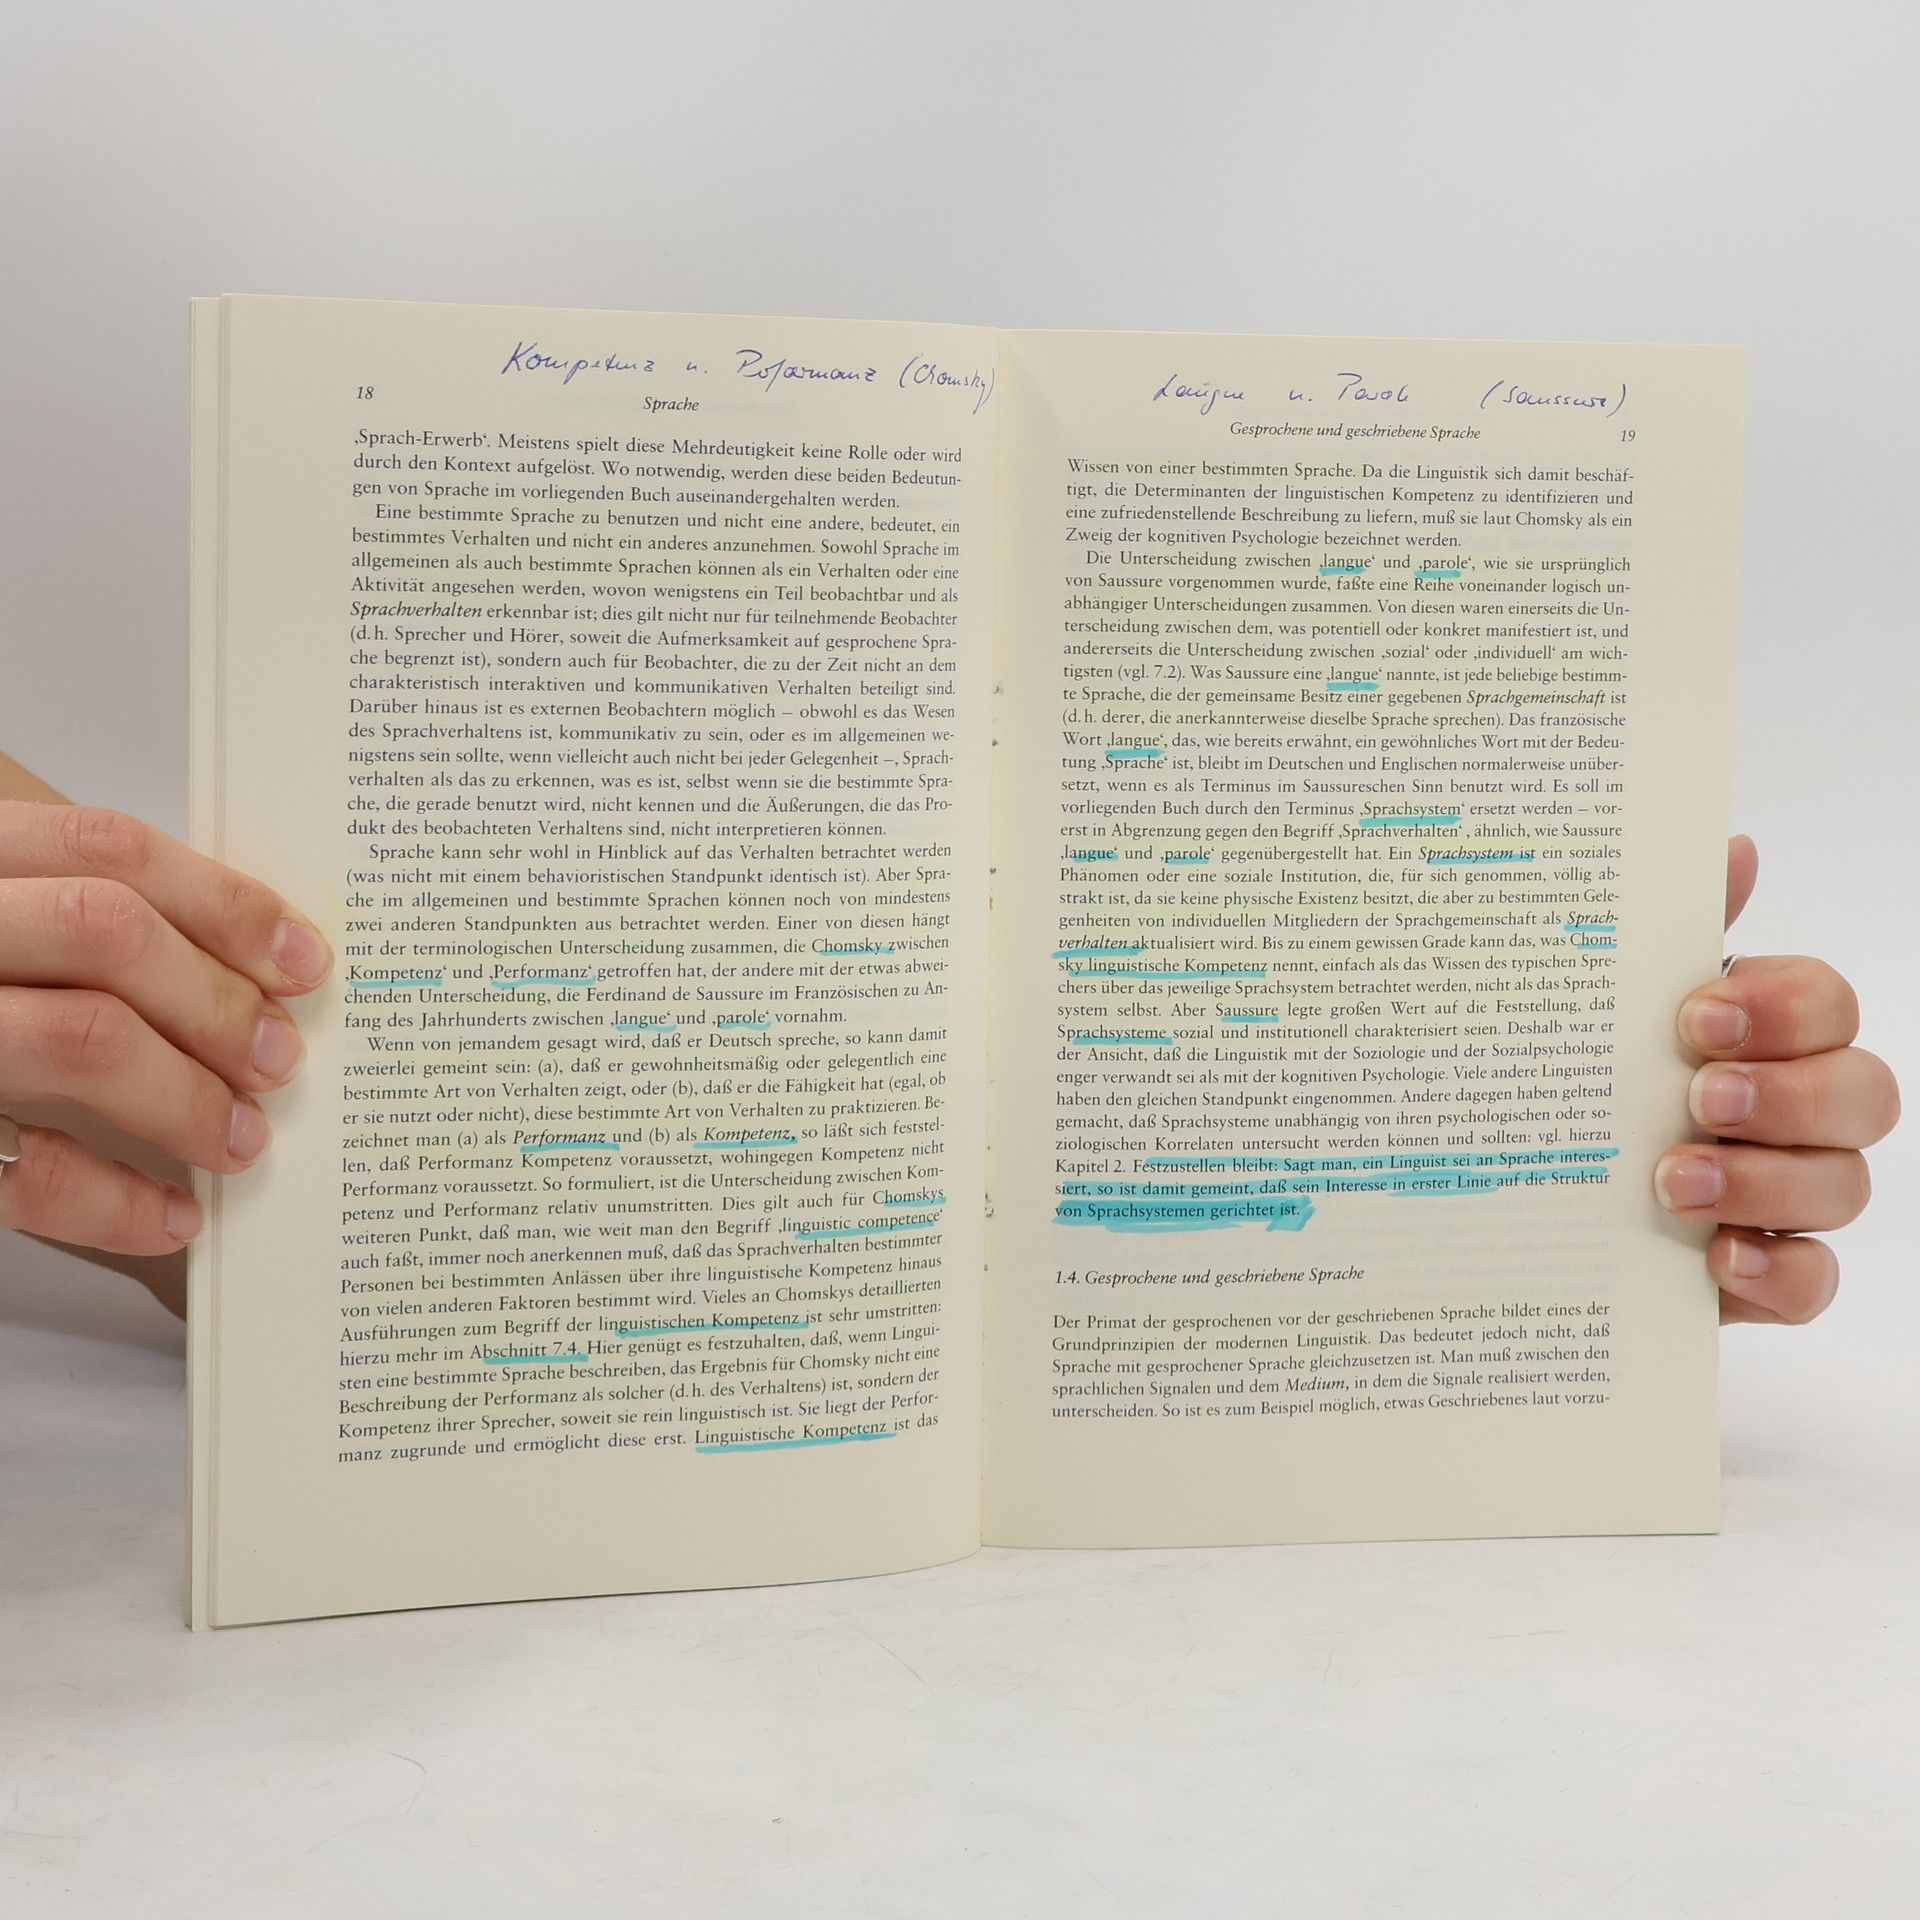 Kompetenz u. Performanz (Chomsky)
18
Sprache
‚Sprach-Erwerb‘. Meistens spielt diese Mehrdeutigkeit keine Rolle oder wird
durch den Kontext aufgelöst. Wo notwendig, werden diese beiden Bedeutun-
gen von Sprache im vorliegenden Buch auseinandergehalten werden.
Eine bestimmte Sprache zu benutzen und nicht eine andere, bedeutet, ein
bestimmtes Verhalten und nicht ein anderes anzunehmen. Sowohl Sprache im
allgemeinen als auch bestimmte Sprachen können als ein Verhalten oder eine
Aktivität angesehen werden, wovon wenigstens ein Teil beobachtbar und als
Sprachverhalten erkennbar ist; dies gilt nicht nur für teilnehmende Beobachter
(d. h. Sprecher und Hörer, soweit die Aufmerksamkeit auf gesprochene Spra-
che begrenzt ist), sondern auch für Beobachter, die zu der Zeit nicht an dem
charakteristisch interaktiven und kommunikativen Verhalten beteiligt sind.
Darüber hinaus ist es externen Beobachtern möglich – obwohl es das Wesen
des Sprachverhaltens ist, kommunikativ zu sein, oder es im allgemeinen we-
nigstens sein sollte, wenn vielleicht auch nicht bei jeder Gelegenheit –, Sprach-
verhalten als das zu erkennen, was es ist, selbst wenn sie die bestimmte Spra-
che, die gerade benutzt wird, nicht kennen und die Äußerungen, die das Pro-
dukt des beobachteten Verhaltens sind, nicht interpretieren können.
Sprache kann sehr wohl in Hinblick auf das Verhalten betrachtet werden
(was nicht mit einem behavioristischen Standpunkt identisch ist). Aber Spra-
che im allgemeinen und bestimmte Sprachen können noch von mindestens
zwei anderen Standpunkten aus betrachtet werden. Einer von diesen hängt
mit der terminologischen Unterscheidung zusammen, die Chomsky zwischen
‚Kompetenz‘ und ‚Performanz‘ getroffen hat, der andere mit der etwas abwei-
chenden Unterscheidung, die Ferdinand de Saussure im Französischen zu An-
fang des Jahrhunderts zwischen ‚langue‘ und ‚parole‘ vornahm.
Wenn von jemandem gesagt wird, daß er Deutsch spreche, so kann damit
zweierlei gemeint sein: (a), daß er gewohnheitsmäßig oder gelegentlich eine
bestimmte Art von Verhalten zeigt, oder (b), daß er die Fähigkeit hat (egal, ob
er sie nutzt oder nicht), diese bestimmte Art von Verhalten zu praktizieren. Be-
zeichnet man (a) als Performanz und (b) als Kompetenz, so läßt sich feststel-
len, daß Performanz Kompetenz voraussetzt, wohingegen Kompetenz nicht
Performanz voraussetzt. So formuliert, ist die Unterscheidung zwischen Kom-
petenz und Performanz relativ unumstritten. Dies gilt auch für Chomskys
weiteren Punkt, daß man, wie weit man den Begriff ‚linguistic competence‘
auch faßt, immer noch anerkennen muß, daß das Sprachverhalten bestimmter
Personen bei bestimmten Anlässen über ihre linguistische Kompetenz hinaus
von vielen anderen Faktoren bestimmt wird. Vieles an Chomskys detaillierten
Ausführungen zum Begriff der linguistischen Kompetenz ist sehr umstritten:
hierzu mehr im Abschnitt 7.4. Hier genügt es festzuhalten, daß, wenn Lingui-
sten eine bestimmte Sprache beschreiben, das Ergebnis für Chomsky nicht eine
Beschreibung der Performanz als solcher (d. h. des Verhaltens) ist, sondern der
Kompetenz ihrer Sprecher, soweit sie rein linguistisch ist. Sie liegt der Perfor-
manz zugrunde und ermöglicht diese erst. Linguistische Kompetenz ist das
Langue u. Parole (Saussure)
Gesprochene und geschriebene Sprache
19
Wissen von einer bestimmten Sprache. Da die Linguistik sich damit beschäf-
tigt, die Determinanten der linguistischen Kompetenz zu identifizieren und
eine zufriedenstellende Beschreibung zu liefern, muß sie laut Chomsky als ein
Zweig der kognitiven Psychologie bezeichnet werden.
Die Unterscheidung zwischen ‚langue‘ und ‚parole‘, wie sie ursprünglich
von Saussure vorgenommen wurde, faßte eine Reihe voneinander logisch un-
abhängiger Unterscheidungen zusammen. Von diesen waren einerseits die Un-
terscheidung zwischen dem, was potentiell oder konkret manifestiert ist, und
andererseits die Unterscheidung zwischen ‚sozial‘ oder ‚individuell‘ am wich-
tigsten (vgl. 7.2). Was Saussure eine ‚langue‘ nannte, ist jede beliebige bestimm-
te Sprache, die der gemeinsame Besitz einer gegebenen Sprachgemeinschaft ist
(d. h. derer, die anerkannterweise dieselbe Sprache sprechen). Das französische
Wort ‚langue‘, das, wie bereits erwähnt, ein gewöhnliches Wort mit der Bedeu-
tung ‚Sprache‘ ist, bleibt im Deutschen und Englischen normalerweise unüber-
setzt, wenn es als Terminus im Saussureschen Sinn benutzt wird. Es soll im
vorliegenden Buch durch den Terminus ‚Sprachsystem‘ ersetzt werden – vor-
erst in Abgrenzung gegen den Begriff ‚Sprachverhalten‘ , ähnlich, wie Saussure
‚langue‘ und ‚parole‘ gegenübergestellt hat. Ein Sprachsystem ist ein soziales
Phänomen oder eine soziale Institution, die, für sich genommen, völlig ab-
strakt ist, da sie keine physische Existenz besitzt, die aber zu bestimmten Gele-
genheiten von individuellen Mitgliedern der Sprachgemeinschaft als Sprach-
verhalten aktualisiert wird. Bis zu einem gewissen Grade kann das, was Chom-
sky linguistische Kompetenz nennt, einfach als das Wissen des typischen Spre-
chers über das jeweilige Sprachsystem betrachtet werden, nicht als das Sprach-
system selbst. Aber Saussure legte großen Wert auf die Feststellung, daß
Sprachsysteme sozial und institutionell charakterisiert seien. Deshalb war er
der Ansicht, daß die Linguistik mit der Soziologie und der Sozialpsychologie
enger verwandt sei als mit der kognitiven Psychologie. Viele andere Linguisten
haben den gleichen Standpunkt eingenommen. Andere dagegen haben geltend
gemacht, daß Sprachsysteme unabhängig von ihren psychologischen oder so-
ziologischen Korrelaten untersucht werden können und sollten: vgl. hierzu
Kapitel 2. Festzustellen bleibt: Sagt man, ein Linguist sei an Sprache interes-
siert, so ist damit gemeint, daß sein Interesse in erster Linie auf die Struktur
von Sprachsystemen gerichtet ist.
1.4. Gesprochene und geschriebene Sprache
Der Primat der gesprochenen vor der geschriebenen Sprache bildet eines der
Grundprinzipien der modernen Linguistik. Das bedeutet jedoch nicht, daß
Sprache mit gesprochener Sprache gleichzusetzen ist. Man muß zwischen den
sprachlichen Signalen und dem Medium, in dem die Signale realisiert werden,
unterscheiden. So ist es zum Beispiel möglich, etwas Geschriebenes laut vorzu-